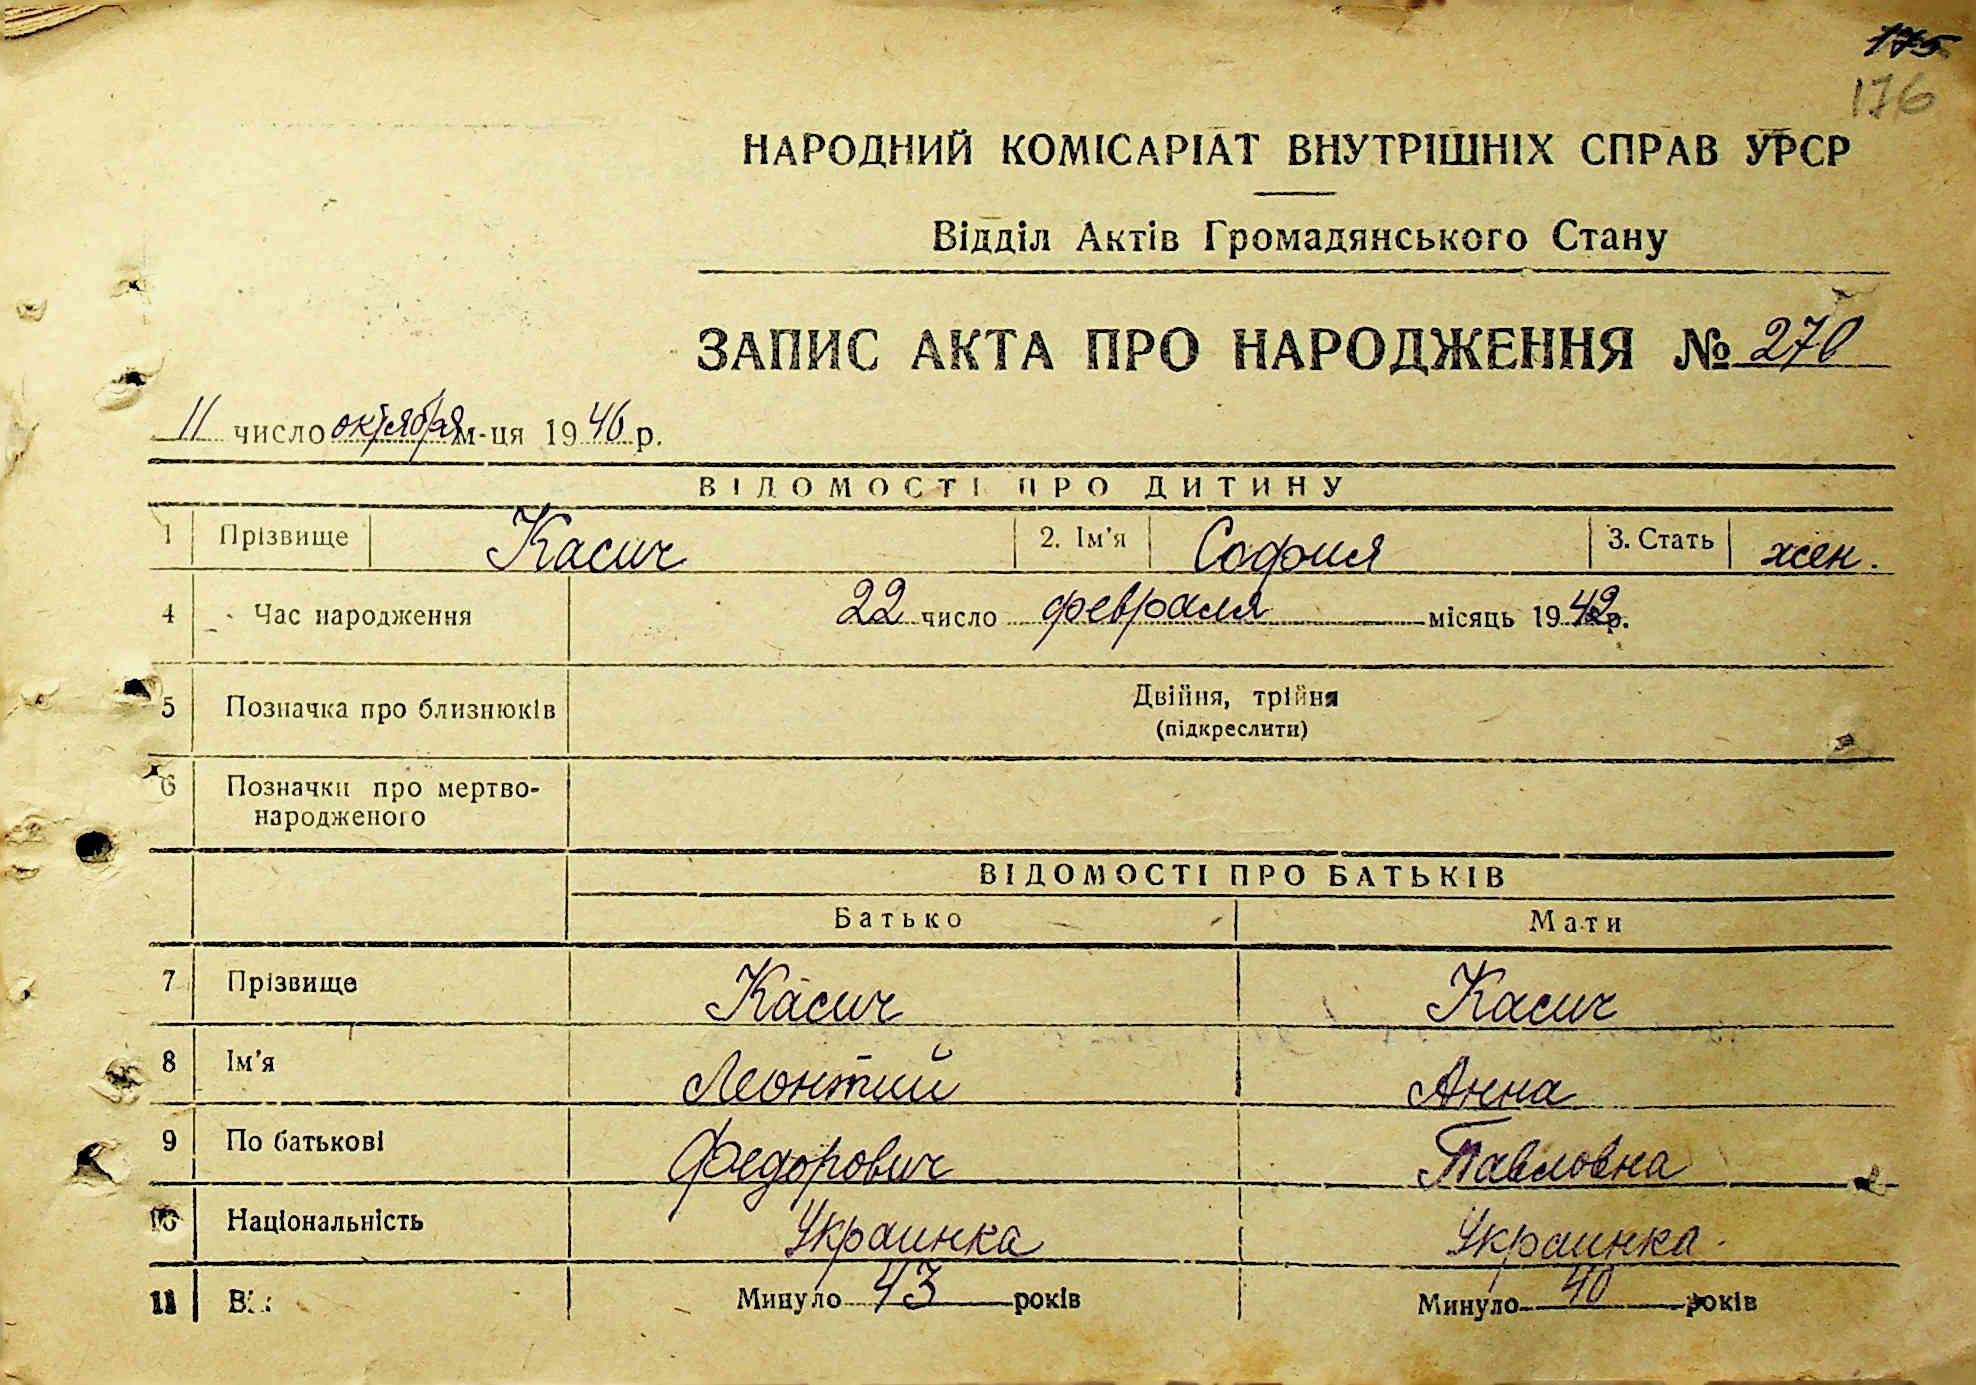 175
176
НАРОДНИЙ КОМІСАРІАТ ВНУТРІШНІХ СПРАВ УРСР
Відділ Актів Громадянського Стану
ЗАПИС АКТА ПРО НАРОДЖЕННЯ № 270
11 число октября м-ця 1946 р.
ВІДОМОСТІ ПРО ДИТИНУ
1 Прізвище Касич 2. Ім'я София 3. Стать жен.
4 Час народження 22 число февраля місяць 1942 р.
5 Позначка про близнюків Двійня, трійня
(підкреслити)
6 Позначки про мертво-
народженого
ВІДОМОСТІ ПРО БАТЬКІВ
Батько Мати
7 Прізвище Касич Касич
8 Ім'я Леонтий Анна
9 По батькові Федорович Павловна
10 Національність Украинка Украинка.
11 Минуло 43 років Минуло 40 років